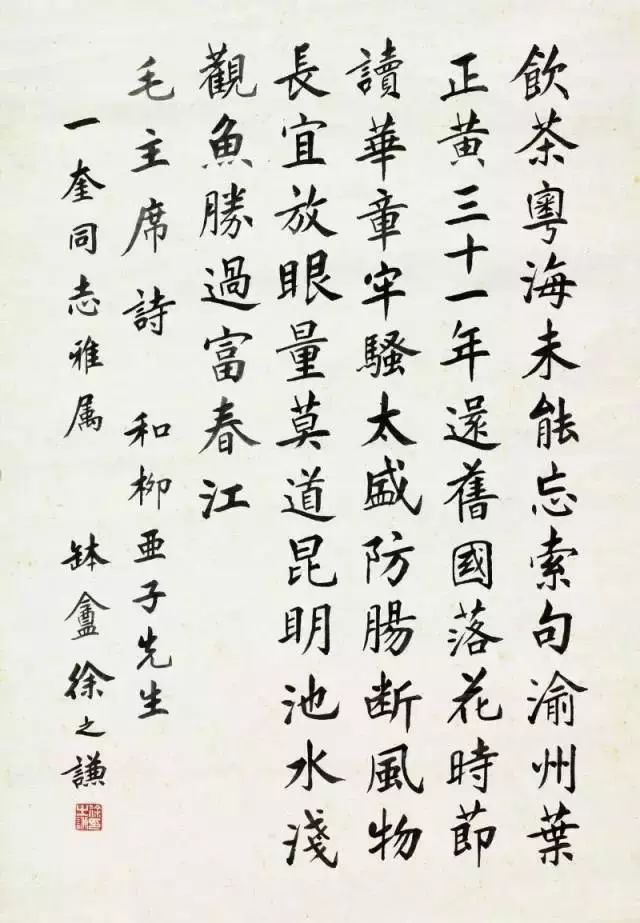 飲茶粵海未能忘索句渝州葉
正黃三十一年還舊國落花時節
讀華章牢騷太盛防腸斷風物
長宜放眼量莫道昆明池水淺
觀魚勝過富春江
毛主席詩 和柳亞子先生
一奎同志雅属 缽盦徐之謙